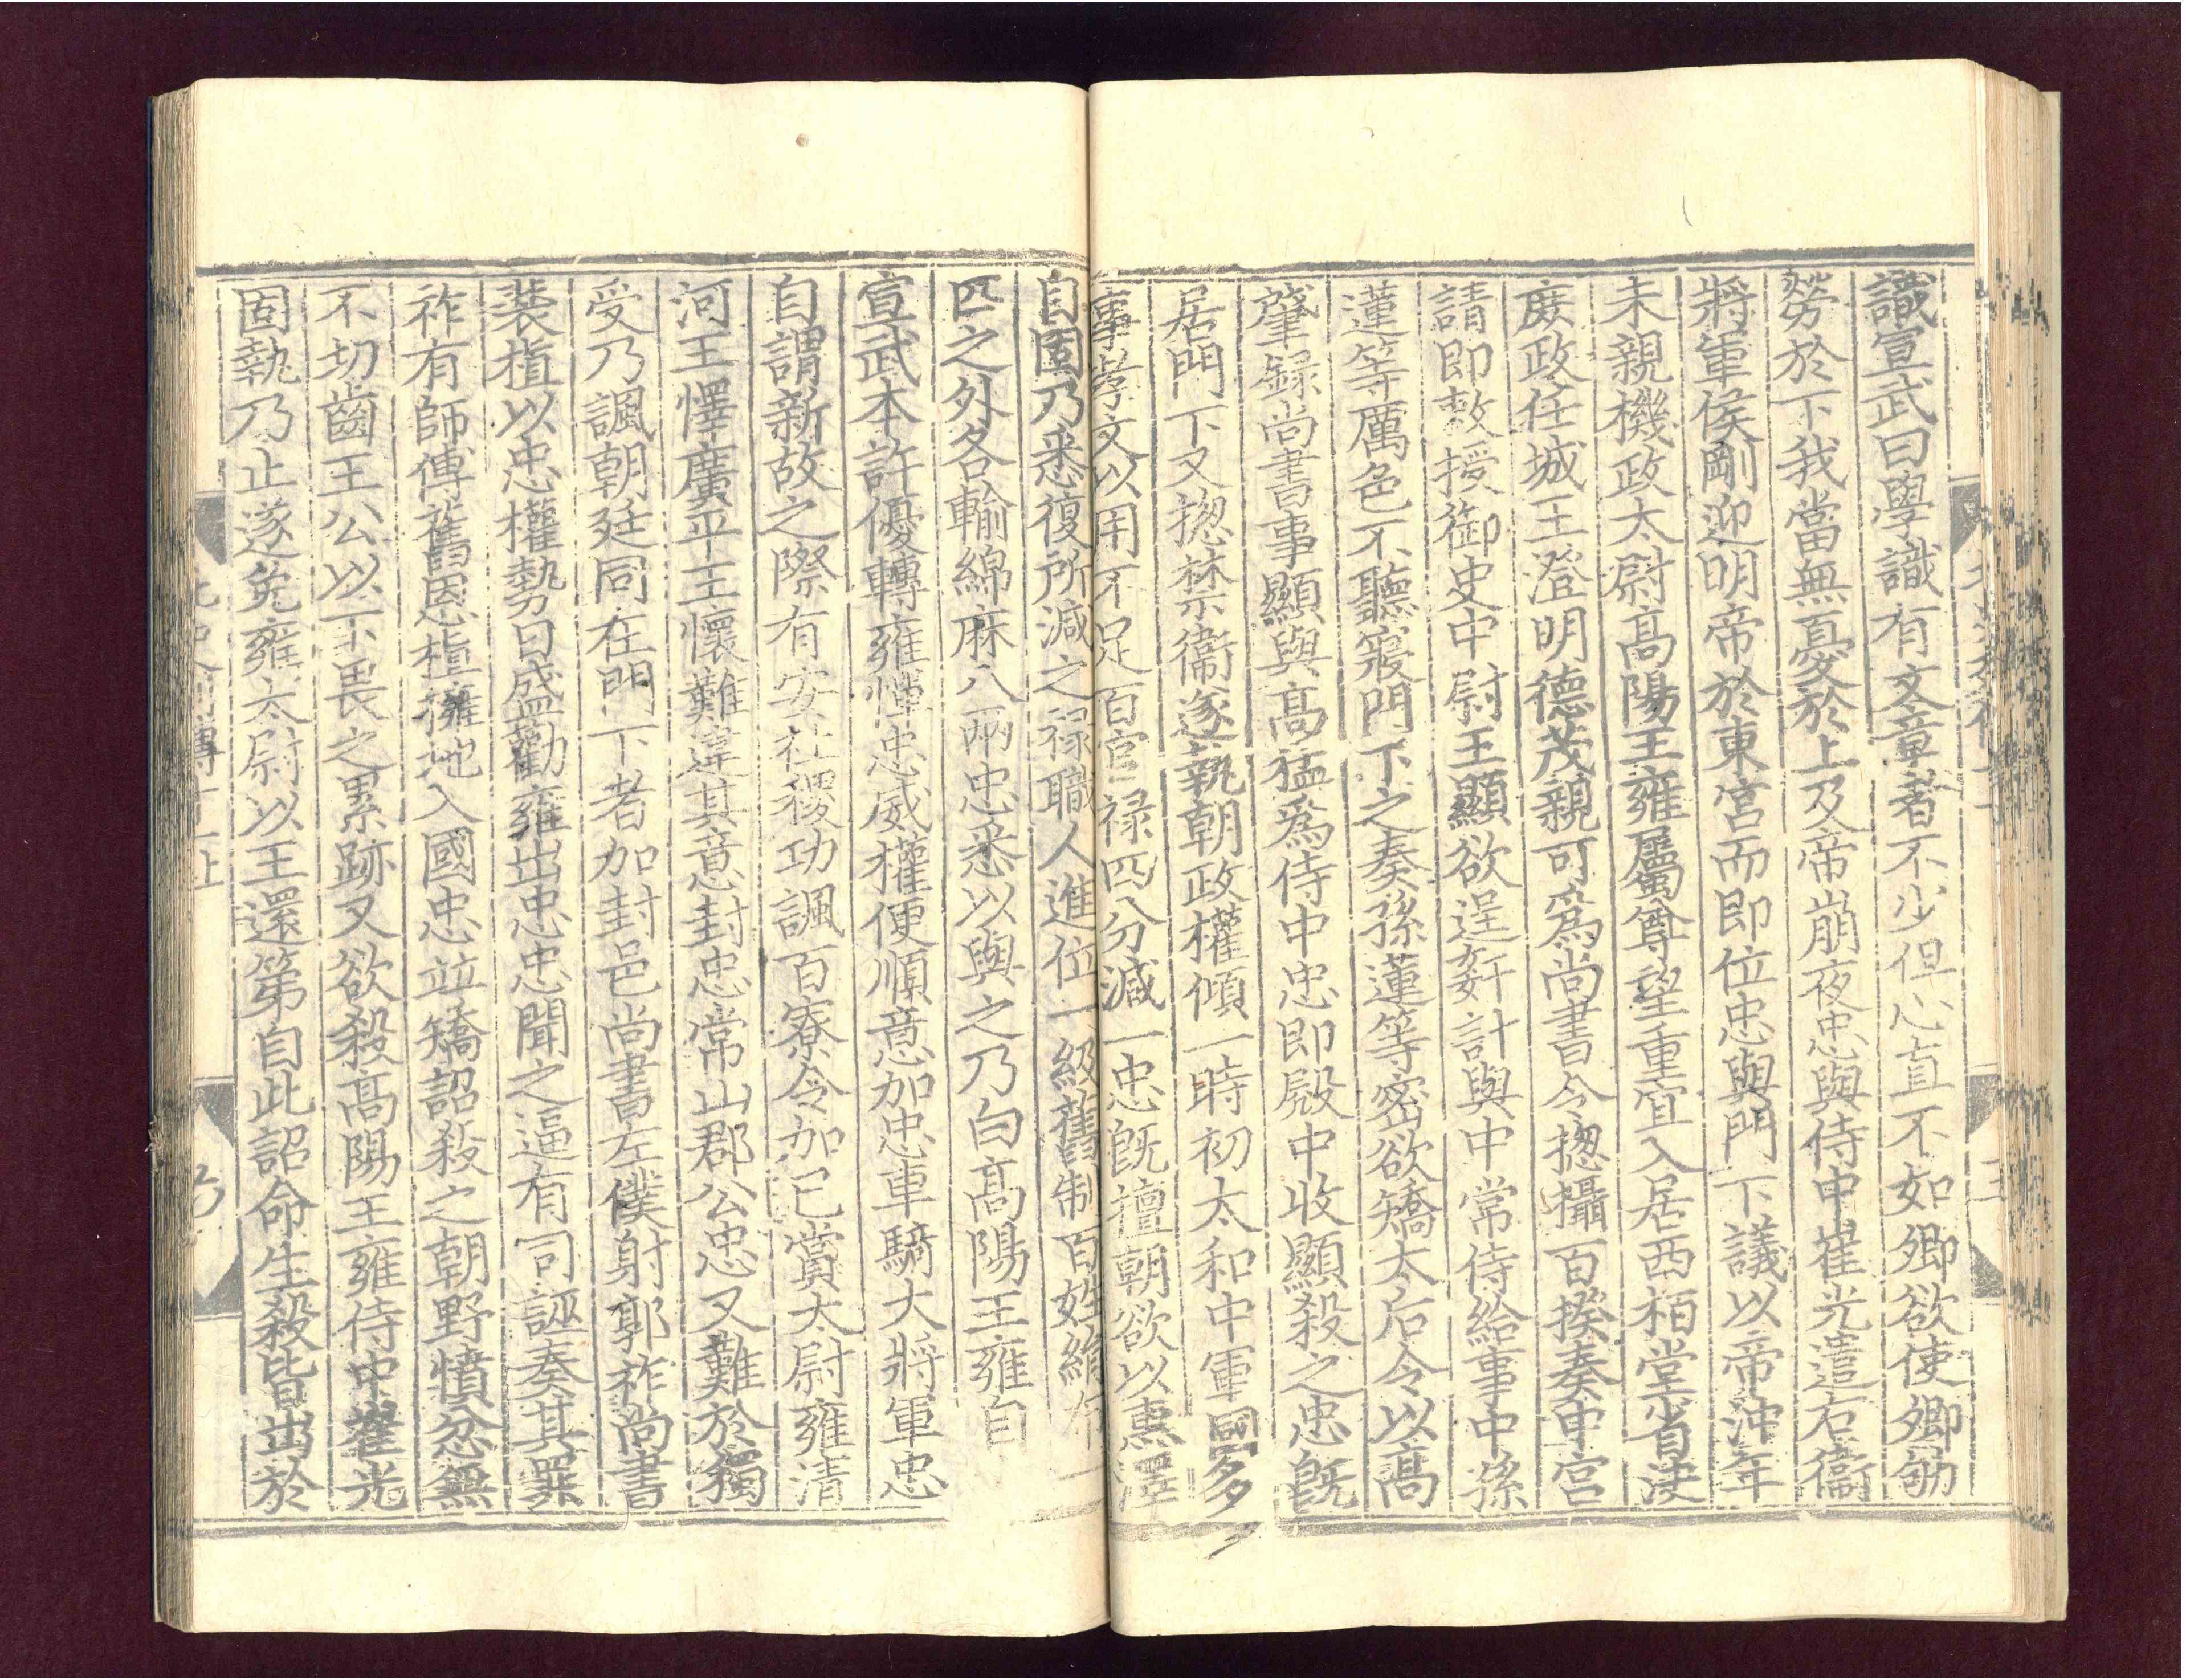 識宣武曰學識有文章者不少但心直不如卿欲使卿劬
勞於下我當無憂於上及帝崩夜忠與侍中崔光遣右衞
將軍侯剛迎明帝於東宮而即位忠與門下議以帝沖年
未親機政太尉高陽王雍屬尊望重宜入居西栢堂省決
庶政任城王澄明德茂親可爲尚書令揔攝百揆奏中宮
請即敕授御史中尉王顯欲逞奸計與中常侍給事中孫
蓮等厲色不聽寢門下之奏孫蓮等密欲矯太后令以高
肇録尚書事顯與高猛爲侍中忠即殿中收顯殺之忠旣
居門下又揔禁衞遂執朝政權傾一時初太和中軍國多
事孝文以用不足百官禄四分減一忠旣擅朝欲以惠澤
自固乃悉復所減之禄職人進位一級舊制百姓絹布一
匹之外各輸綿麻八兩忠悉以與之乃白高陽王雍自
宣武本許優轉雍憚忠威權便順意加忠車騎大將軍忠
自謂新故之際有安社稷功諷百寮令加己賞太尉雍清
河王懌廣平王懷難違其意封忠常山郡公忠又難於獨
受乃諷朝廷同在門下者加封邑尚書左僕射郭祚尚書
裴植以忠權勢日盛勸雍出忠忠聞之逼有司誣奏其罪
祚有師傅舊恩植擁地入國忠竝矯詔殺之朝野憤忿無
不切齒王公以下畏之累跡又欲殺高陽王雍侍中崔光
固執乃止遂免雍太尉以王還第自此詔命生殺皆出於